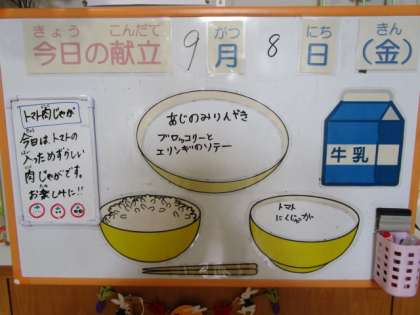 きょう こんだて がつ にち きん
今日の献立 9月 8日 (金)
トマト肉じゃが
今日は、トマトの
入っためずらしい
肉じゃがです。
お楽しみに!!
あじのみりんやき
ブロッコリーと
エリンギのソテー
牛乳
トマト
にくじゃが